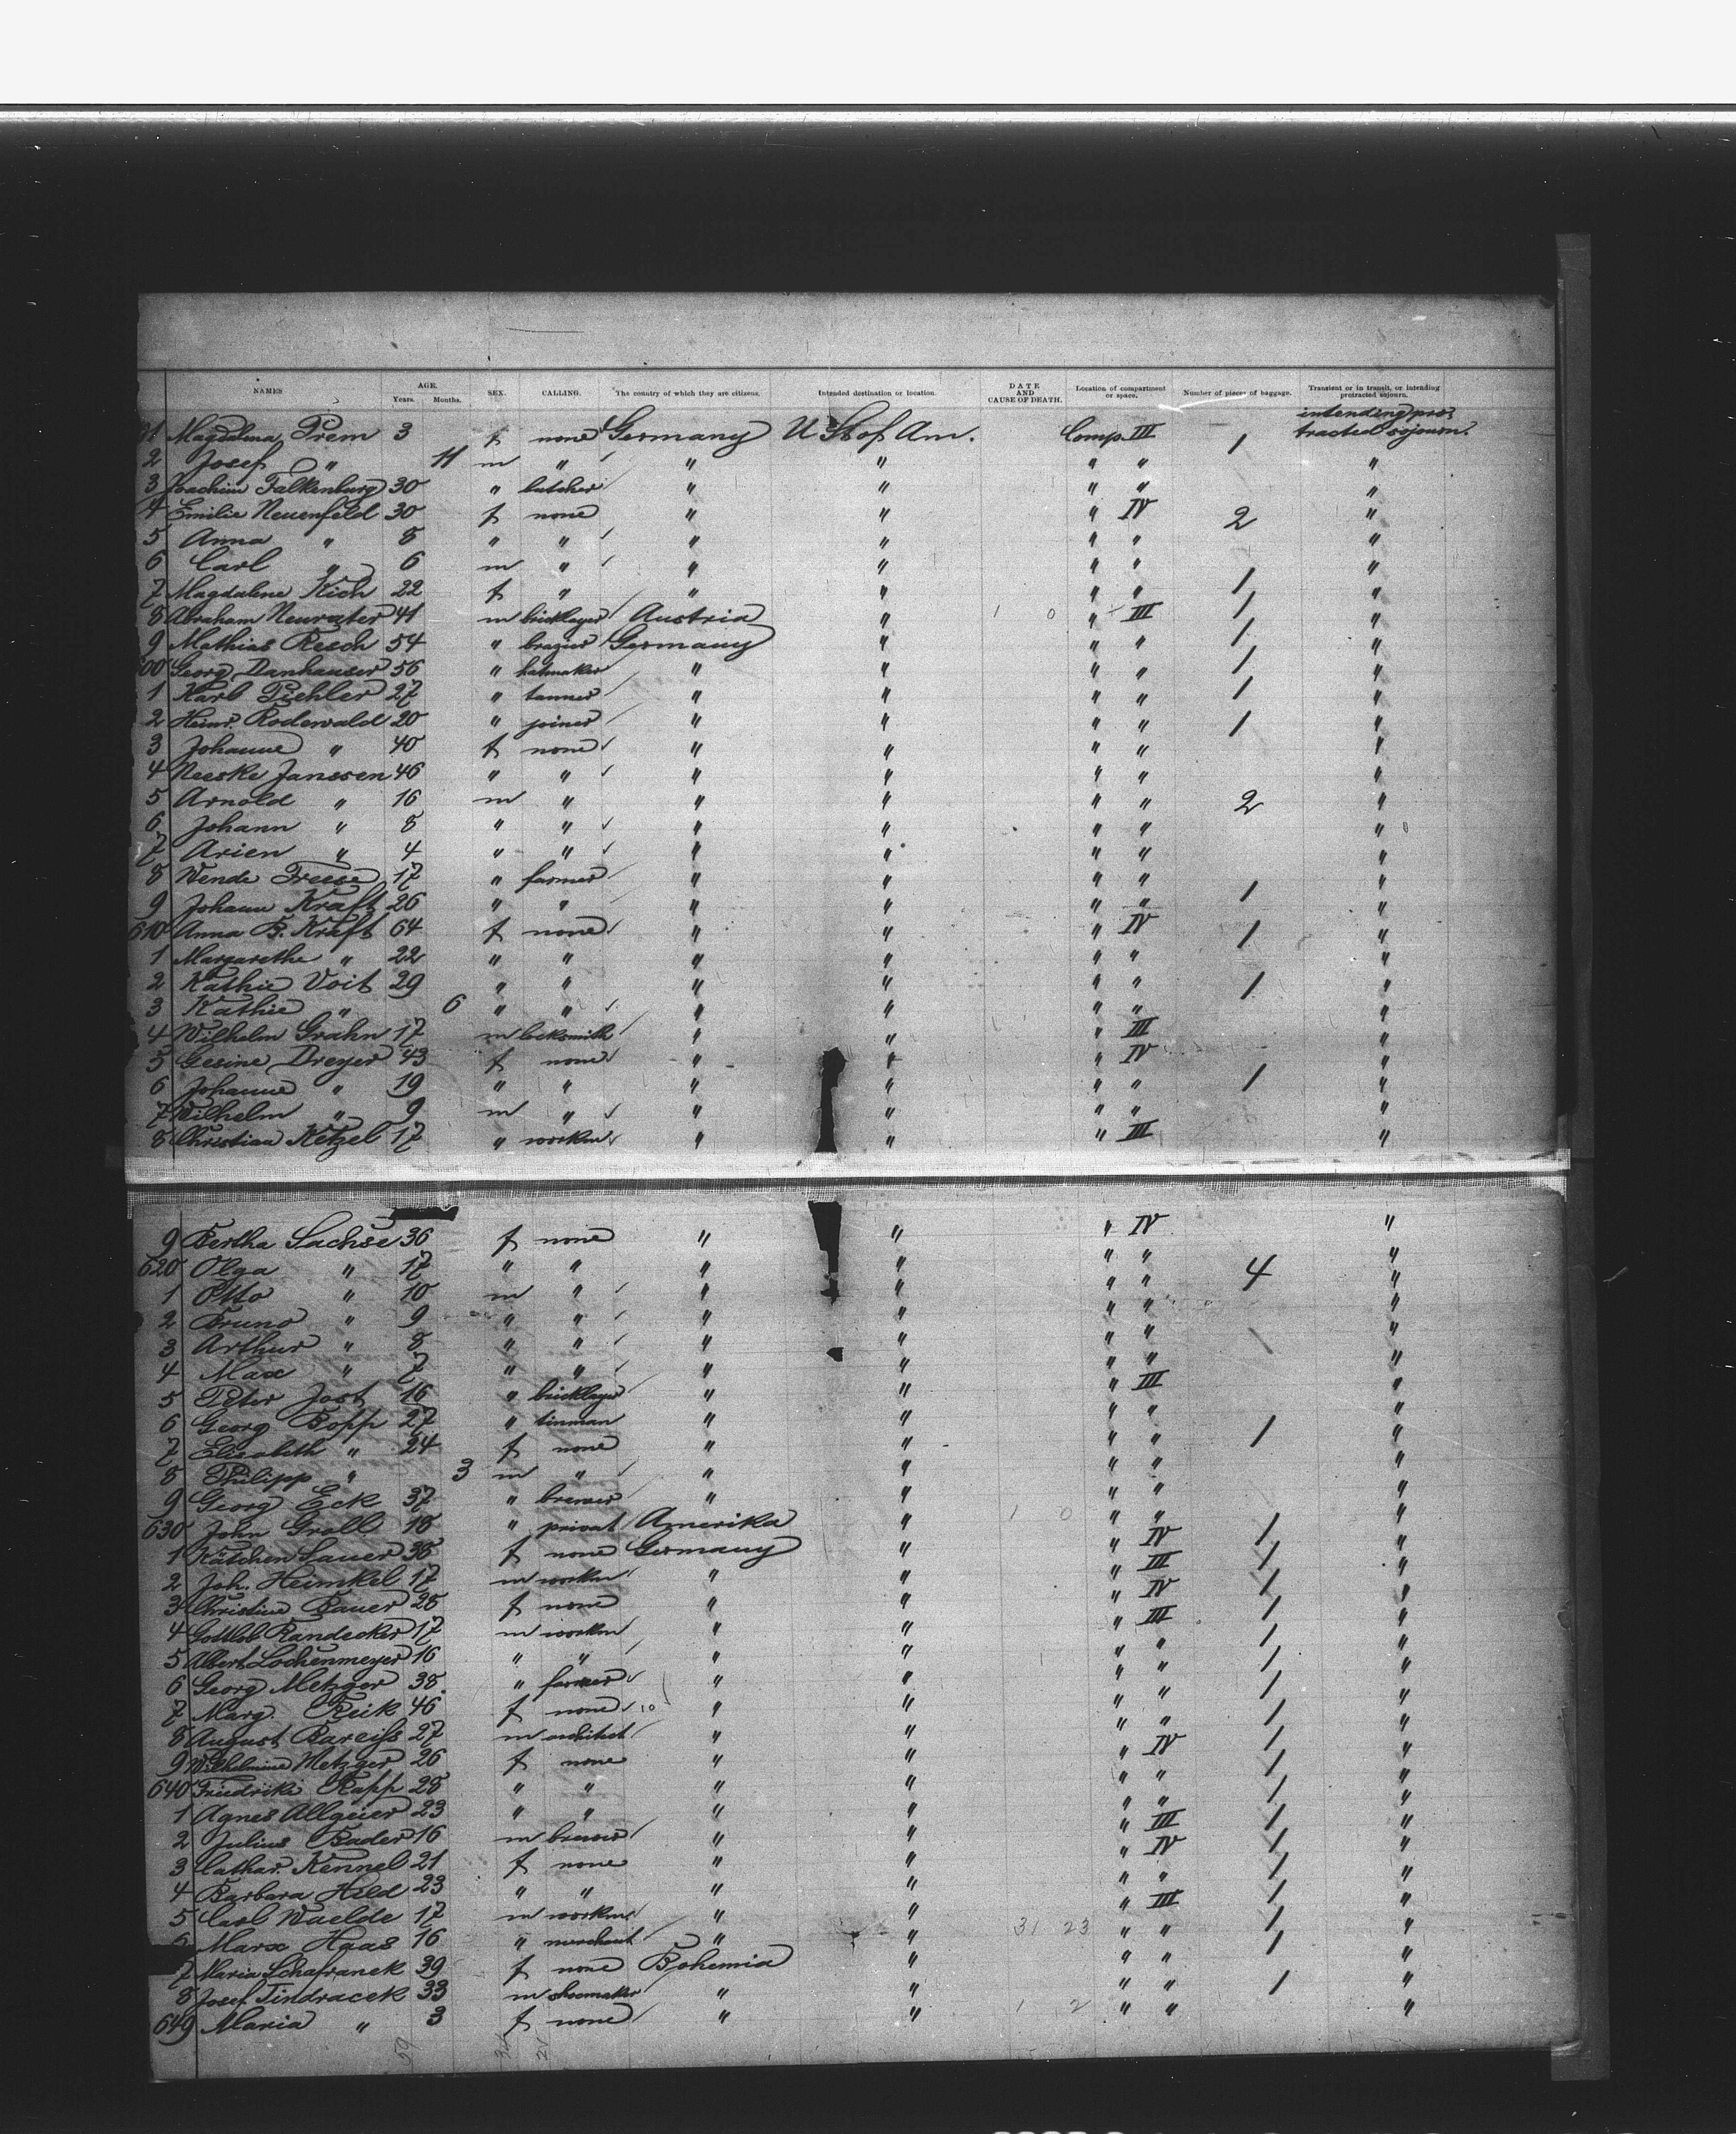 NAMES AGE. Years. Months. SEX. CALLING. The country of which they are citizens. Intended destination or location. DATE AND CAUSE OF DEATH. Location of compartment or space. Number of pieces of baggage. Transient or in transit, or intending protracted sojourn.
91 Magdalena Prem 3 f none Germany U. St of Am. Comp. III 1 intending protracted sojourn.
2 Josef " 11 m " " " " " "
3 Joachim Falkenburg 30 " butcher " " " " "
4 Emilie Neuenfeld 30 f none " " " IV 2 "
5 Anna " 8 " " " " " " "
6 Carl " 6 m " " " " " "
7 Magdalene Kich 22 f " " " " " 1 "
8 Abraham Neurater 41 m bricklayer Austria " 1 0 " III 1 "
9 Mathias Resch 54 " brazier Germany " " " 1 "
600 Georg Danhauser 56 " hatmaker " " " " 1 "
1 Karl Piehler 27 " tanner " " " " 1 "
2 Heinr. Rodewald 20 " joiner " " " " 1 "
3 Johanne " 40 f none " " " " "
4 Neeske Janssen 46 " " " " " " "
5 Arnold " 16 m " " " " " 2 "
6 Johann " 8 " " " " " " "
7 Arien " 4 " " " " " " "
8 Wende Freese 17 " farmer " " " " "
9 Johann Kraft 26 " " " " " " 1 "
610 Anna B. Kraft 64 f none " " " IV 1 "
1 Margarethe " 22 " " " " " " "
2 Kathie Voit 29 " " " " " " 1 "
3 Kathie " 6 " " " " " " "
4 Wilhelm Grahn 17 m locksmith " " " III "
5 Gesine Dreyer 43 f none " " " IV "
6 Johanne " 19 " " " " " " 1 "
7 Wilhelm " 9 m " " " " " "
8 Christian Ketzel 17 " workm " " " III "
9 Bertha Sachse 36 f none " " " IV "
620 Olga " 17 " " " " " " 4 "
1 Otto " 10 m " " " " " "
2 Bruno " 9 " " " " " " "
3 Arthur " 8 " " " " " " "
4 Max " 7 " " " " " " "
5 Peter Jost 16 " bricklayer " " " III "
6 Georg Bopp 27 " tinman " " " " 1 "
7 Elisabeth " 24 f none " " " " "
8 Philipp " 3 m " " " " " "
9 Georg Eck 37 " brewer " " " " "
630 John Groll 18 " privat Amerika " 1 0 " " 1 "
1 Kätchen Sauer 38 f none Germany " " IV 1 "
2 Joh. Heimkel 17 m workm " " " III 1 "
3 Christine Bauer 28 f none " " " IV 1 "
4 Gottlob Randecker 17 m workm " " " III 1 "
5 Albert Lochenmeyer 16 " " " " " " 1 "
6 Georg Metzger 38. " farmer " " " " 1 "
7 Marg. Reik 46 f none 10 " " " " 1 "
8 August Bareiss 27 m architect " " " " 1 "
9 Wilhelmine Metzger 26 f none " " " IV 1 "
640 Friedrike Rapp 28 " " " " " " 1 "
1 Agnes Allgeier 23 " " " " " " 1 "
2 Julius Bader 16 m brewer " " " III 1 "
3 Cathar. Kennel 21 f none " " " IV 1 "
4 Barbara Held 23 " " " " " " 1 "
5 Carl Waelde 17 m workm " " " III 1 "
6 Marx Haas 16 " merchant " " 31 23 " " 1 "
7 Maria Schafranek 39 f none Bohemia " " " "
8 Josef Tindracek 33 m shoemaker " " " " 1 "
649 Maria " 3 f none " " 1 2 " " "
59